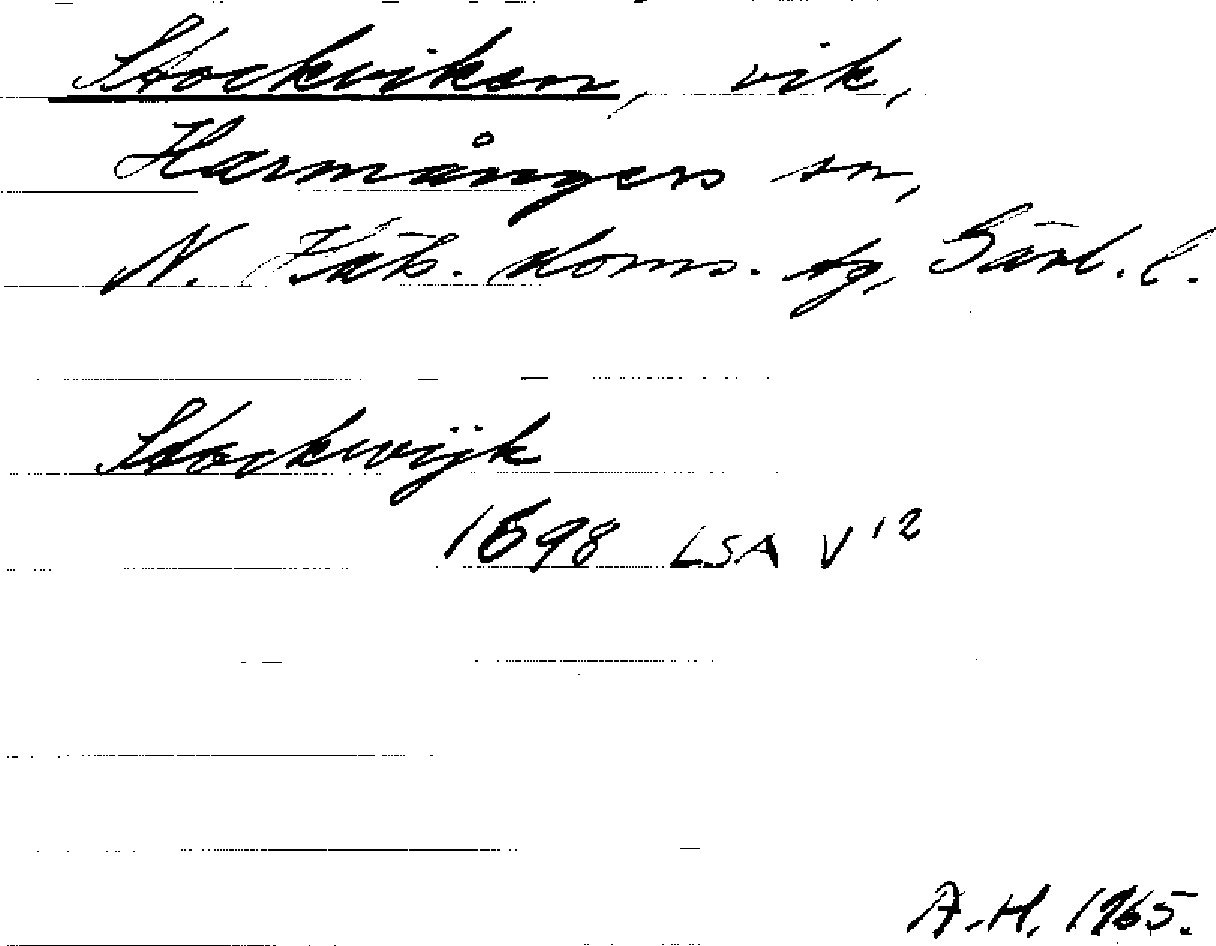 Stockviken, vik,
Harmångers sn,
N. Häls. doms. sg, Gävl. l.
Stockwijk
1698 LSA V12
A.H. 1965.